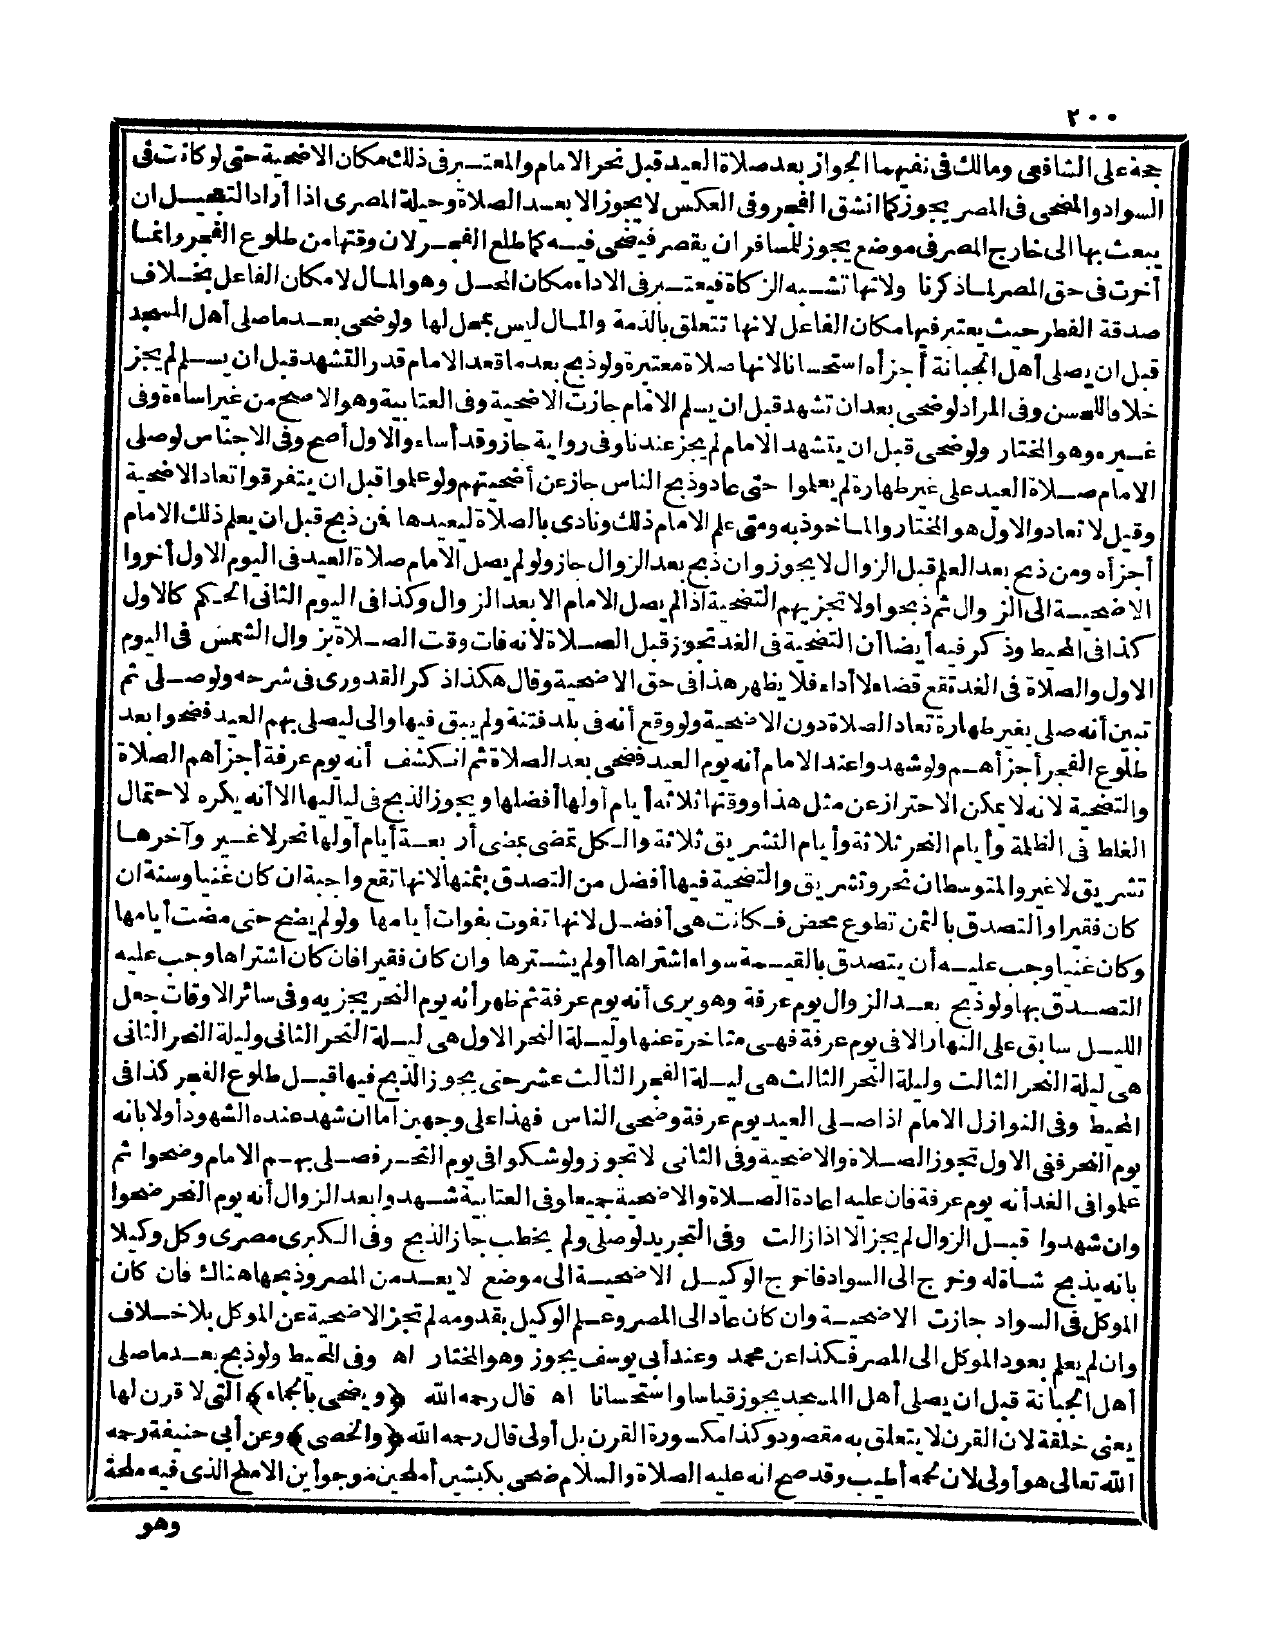 ٢٠٠
حجة على الشافعى ومالك فى نفيهما الجواز بعد صلاة العيد قبل نحر الامام والمعتبر فى ذلك مكان الاضحية حتى لو كانت فى
السواد والمضحى فى المصر يجوز كما انشق الفجر وفى العكس لا يجوز الا بعد الصلاة وحيلة المصرى اذا أراد التعجيل ان
يبعث بها الى خارج المصر فى موضع يجوز للمسافر ان يقصر فيضحى فيه كما طلع الفجر لان وقتها من طلوع الفجر وانما
أخرت فى حق المصر لما ذكرنا ولانها تشبه الزكاة فيعتبر فى الاداء مكان المحل وهو المال لا مكان الفاعل بخلاف
صدقة الفطر حيث يعتبر فيها مكان الفاعل لانها تتعلق بالذمة والمال ليس بمحل لها ولو ضحى بعد ما صلى أهل المسجد
قبل ان يصلى أهل الجبانة أجزأه استحسانا لانها صلاة معتبرة ولو ذبح بعد ما قعد الامام قدر التشهد قبل ان يسلم لم يجز
خلافا للحسن وفى المراد لو ضحى بعد ان تشهد قبل ان يسلم الامام جازت الاضحية وفى العتابية وهو الاصح من غير اساءة وفى
غيره وهو المختار ولو ضحى قبل ان يتشهد الامام لم يجز عندنا وفى رواية جاز وقد أساء والاول أصح وفى الاجناس لو صلى
الامام صلاة العيد على غير طهارة لم يعلموا حتى عاد وذبح الناس جاز عن أضحيتهم ولو علموا قبل ان يتفرقوا تعاد الاضحية
وقيل لا تعاد والاول هو المختار والمأخوذ به ومتى علم الامام ذلك ونادى بالصلاة ليعيدها فمن ذبح قبل ان يعلم ذلك الامام
أجزأه ومن ذبح بعد العلم قبل الزوال لا يجوز وان ذبح بعد الزوال جاز ولو لم يصل الامام صلاة العيد فى اليوم الاول أخروا
الاضحية الى الزوال ثم ذبحوا ولا تجزيهم التضحية اذا لم يصل الامام الا بعد الزوال وكذا فى اليوم الثانى الحكم كالاول
كذا فى المحيط وذكر فيه أيضا أن التضحية فى الغد تجوز قبل الصلاة لانه فات وقت الصلاة بزوال الشمس فى اليوم
الاول والصلاة فى الغد تقع قضاء لا أداء فلا يظهر هذا فى حق الاضحية وقال هكذا ذكر القدورى فى شرحه ولو صلى ثم
تبين أنه صلى بغير طهارة تعاد الصلاة دون الاضحية ولو وقع أنه فى بلد فتنة ولم يبق فيها والى ليصلى بهم العيد فضحوا بعد
طلوع الفجر أجزأهم ولو شهدوا عند الامام أنه يوم العيد فضحى بعد الصلاة ثم انكشف أنه يوم عرفة أجزأهم الصلاة
والتضحية لانه لا يمكن الاحتراز عن مثل هذا ووقتها ثلاثة أيام أولها أفضلها ويجوز الذبح فى لياليها الا أنه يكره لاحتمال
الغلط فى الظلمة وأيام النحر ثلاثة وأيام التشريق ثلاثة والكل تمضى بمضى أربعة أيام أولها نحر لا غير وآخرها
تشريق لا غير والمتوسطان نحر وتشريق والتضحية فيها أفضل من التصدق بثمنها لانها تقع واجبة ان كان غنيا وسنة ان
كان فقيرا والتصدق بالثمن تطوع محض فكانت هى أفضل لانها تفوت بفوات أيامها ولو لم يضح حتى مضت أيامها
وكان غنيا وجب عليه أن يتصدق بالقيمة سواء اشتراها أو لم يشترها وان كان فقيرا فان كان اشتراها وجب عليه
التصدق بها ولو ذبح بعد الزوال يوم عرفة وهو يرى أنه يوم عرفة ثم ظهر أنه يوم النحر يجزيه وفى سائر الاوقات جعل
الليل سابق على النهار الا فى يوم عرفة فهى متاخرة عنها وليلة النحر الاول هى ليلة النحر الثانى وليلة النحر الثانى
هى ليلة النحر الثالث وليلة النحر الثالث هى ليلة الفجر الثالث عشر حتى يجوز الذبح فيها قبل طلوع الفجر كذا فى
المحيط وفى النوازل الامام اذا صلى العيد يوم عرفة وضحى الناس فهذا على وجهين اما ان شهد عنده الشهود أولا بانه
يوم النحر ففى الاول تجوز الصلاة والاضحية وفى الثانى لا تجوز ولو شكوا فى يوم النحر فصلى بهم الامام وضحوا ثم
علموا فى الغد أنه يوم عرفة فان عليه اعادة الصلاة والاضحية جميعا وفى العتابية شهدوا بعد الزوال أنه يوم النحر ضحوا
وان شهدوا قبل الزوال لم يجز الا اذا زالت وفى التجريد لو صلى ولم يخطب جاز الذبح وفى الكبرى مصرى وكل وكيلا
بانه يذبح شاة له وخرج الى السواد فاخرج الوكيل الاضحية الى موضع لا يعد من المصر وذبحها هناك فان كان
الموكل فى السواد جازت الاضحية وان كان عاد الى المصر وعلم الوكيل بقدومه لم تجز الاضحية عن الموكل بلا خلاف
وان لم يعلم بعود الموكل الى المصر فكذا عن محمد وعند أبى يوسف يجوز وهو المختار اه وفى المحيط ولو ذبح بعد ما صلى
أهل الجبانة قبل ان يصلى أهل المسجد يجوز قياسا واستحسانا اه قال رحمه الله ﴿ويضحى بالجماء﴾ التى لا قرن لها
يعنى خلقة لان القرن لا يتعلق به مقصود وكذا مكسورة القرن بل أولى قال رحمه الله ﴿والخصى﴾ وعن أبى حنيفة رحمه
الله تعالى هو أولى لان لحمه أطيب وقد صح انه عليه الصلاة والسلام ضحى بكبشين أملحين موجوأين الاملح الذى فيه ملحة
وهو